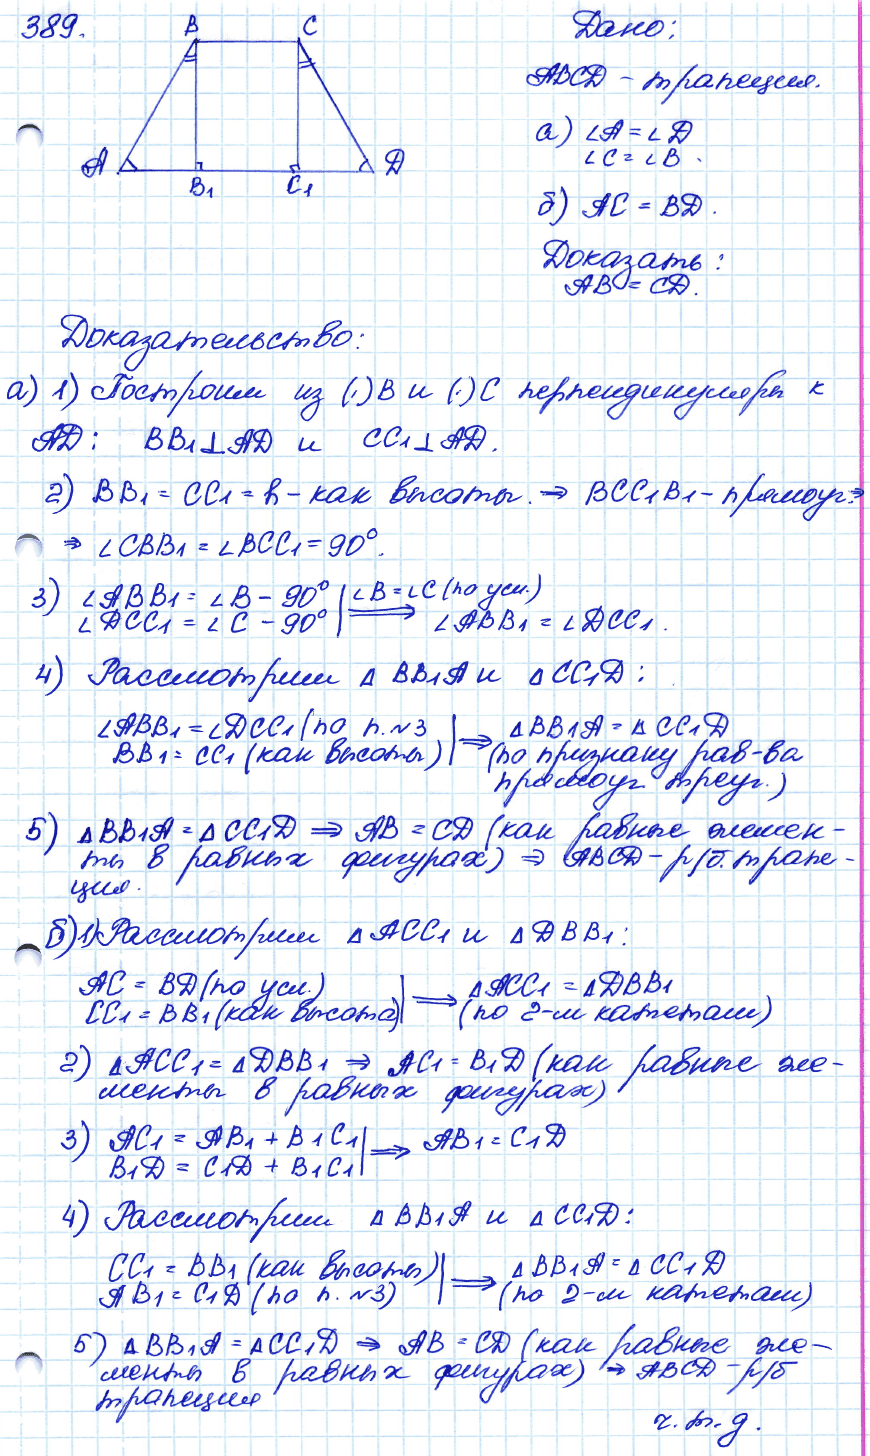 389.
B C
A B₁ C₁ D
Дано:
ABCD – трапеция.
а) ∠A = ∠D
∠C = ∠B.
б) AC = BD.
Доказать:
AB = CD.
Доказательство:
а) 1) Построим из (·)B и (·)C перпендикуляры к
AD: BB₁⊥AD и CC₁⊥AD.
2) BB₁ = CC₁ = h – как высоты. ⇒ BCC₁B₁ – прямоуг. ⇒
⇒ ∠CBB₁ = ∠BCC₁ = 90°.
3) ∠ABB₁ = ∠B – 90° | ∠B = ∠C (по усл.)
∠DCC₁ = ∠C – 90° | ⇒ ∠ABB₁ = ∠DCC₁.
4) Рассмотрим △BB₁A и △CC₁D:
∠ABB₁ = ∠DCC₁ (по п.№3 | ⇒ △BB₁A = △CC₁D
BB₁ = CC₁ (как высоты) | (по признаку рав-ва
прямоуг. треуг.)
5) △BB₁A = △CC₁D ⇒ AB = CD (как равные элемен-
ты в равных фигурах) ⇒ ABCD – р/б. трапе-
ция.
б) 1) Рассмотрим △ACC₁ и △DBB₁:
AC = BD (по усл.) | ⇒ △ACC₁ = △DBB₁
CC₁ = BB₁ (как высота) | (по 2-м катетам)
2) △ACC₁ = △DBB₁ ⇒ AC₁ = B₁D (как равные эле-
менты в равных фигурах)
3) AC₁ = AB₁ + B₁C₁ | ⇒ AB₁ = C₁D
B₁D = C₁D + B₁C₁ |
4) Рассмотрим △BB₁A и △CC₁D:
CC₁ = BB₁ (как высоты) | ⇒ △BB₁A = △CC₁D
AB₁ = C₁D (по п.№3) | (по 2-м катетам)
5) △BB₁A = △CC₁D ⇒ AB = CD (как равные эле-
менты в равных фигурах) ⇒ ABCD – р/б
трапеция
ч.т.д.